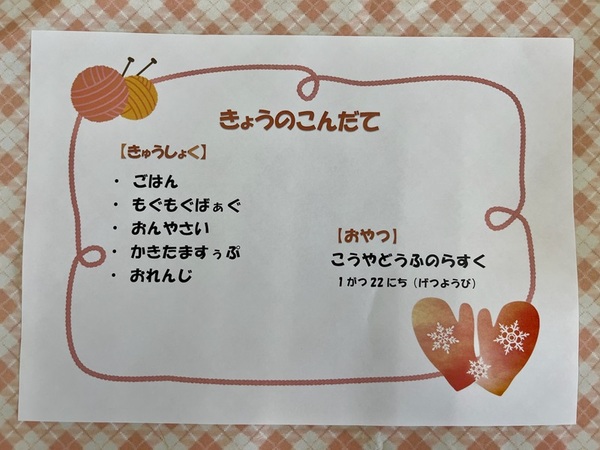 きょうのこんだて
【きゅうしょく】
・ ごはん
・ もぐもぐばぁぐ
・ おんやさい
・ かきたますぅぷ
・ おれんじ
【おやつ】
こうやどうふのらすく
1がつ22にち（げつようび）